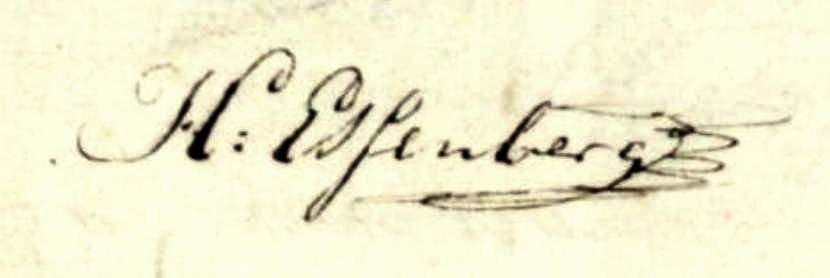 H: Eiſenberg